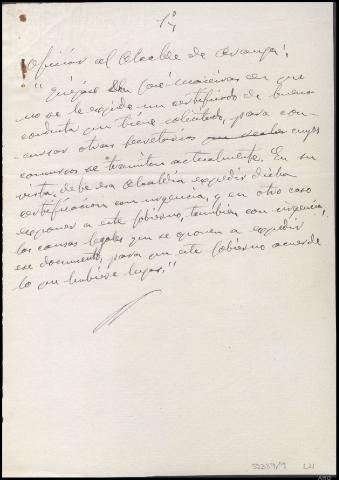 1º
Oficiar al Alcalde de Aranga:
"Quéjase Don José Maceiras de que
no se le expide un certificado de buena
conducta que tiene solicitado, para con-
cursar otras Secretarías cuyos
concursos se tramitan actualmente. En su
vista debe esa Alcaldía expedir dicha
certificación con urgencia, y en otro caso
exponer a este Gobierno, también con urgencia,
las causas legales que se oponen a expedir
ese documento, para que este Gobierno acuerde
lo que hubiere lugar."
32239/9 L21